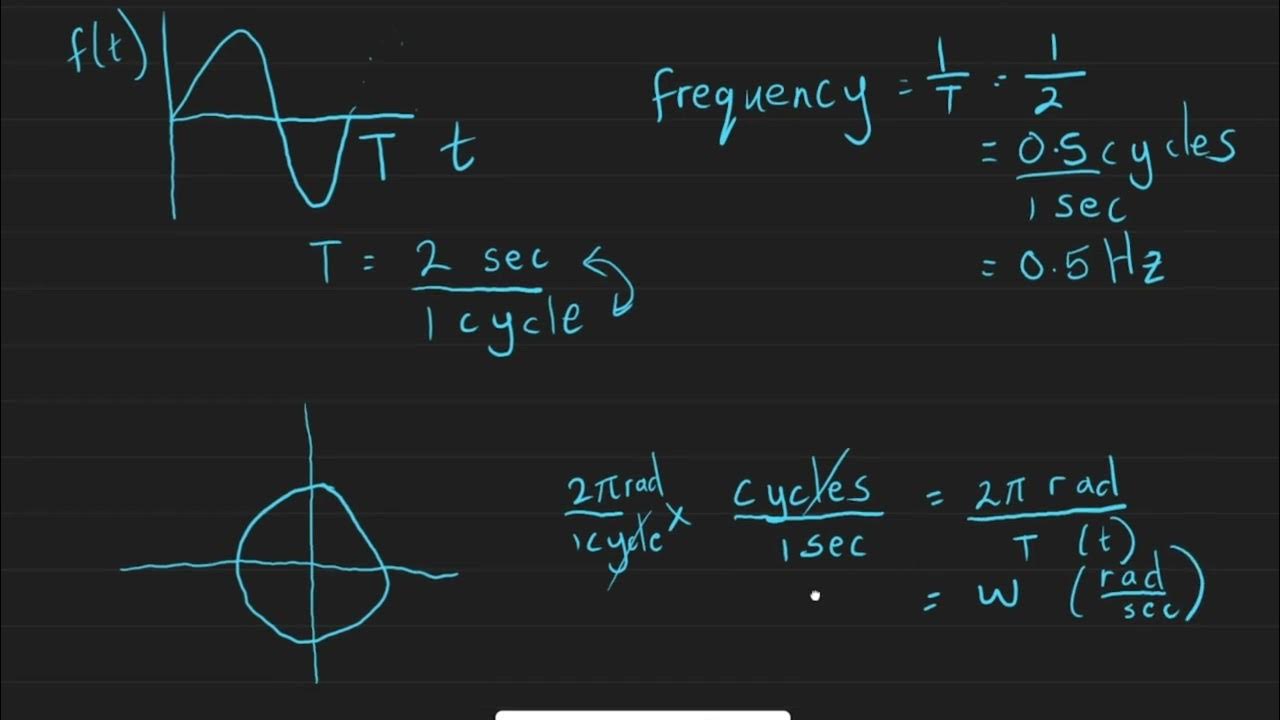 f(t)
T t
T = 2 sec / 1 cycle
frequency = 1/T = 1/2
= 0.5 cycles / 1 sec
= 0.5 Hz
2π rad / 1 cycle × cycles / 1 sec = 2π rad / T (t)
= w (rad/sec)